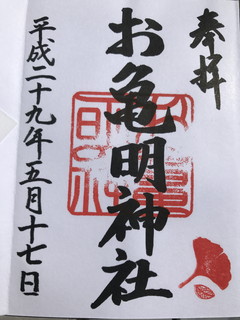 奉拝
お亀明神社
平成二十九年五月十七日